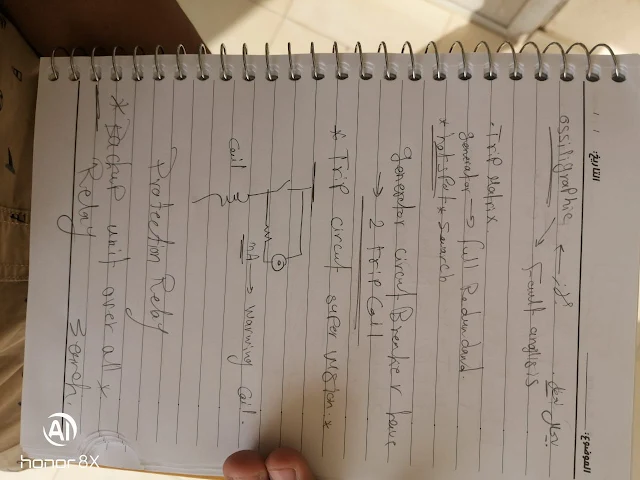 التاريخ:
الموضوع:
ossiligraphic
Fault anglisis
Trip Matrix
generator → full Redundand.
* hot spot * Search
generator circuit Breaker have
→ 2 trip Coil
* Trip circuit super vision *
Coil
mA → Warning Coil.
Protection Relay
* Backup unit over all *
Relay Search
AI
honor 8X